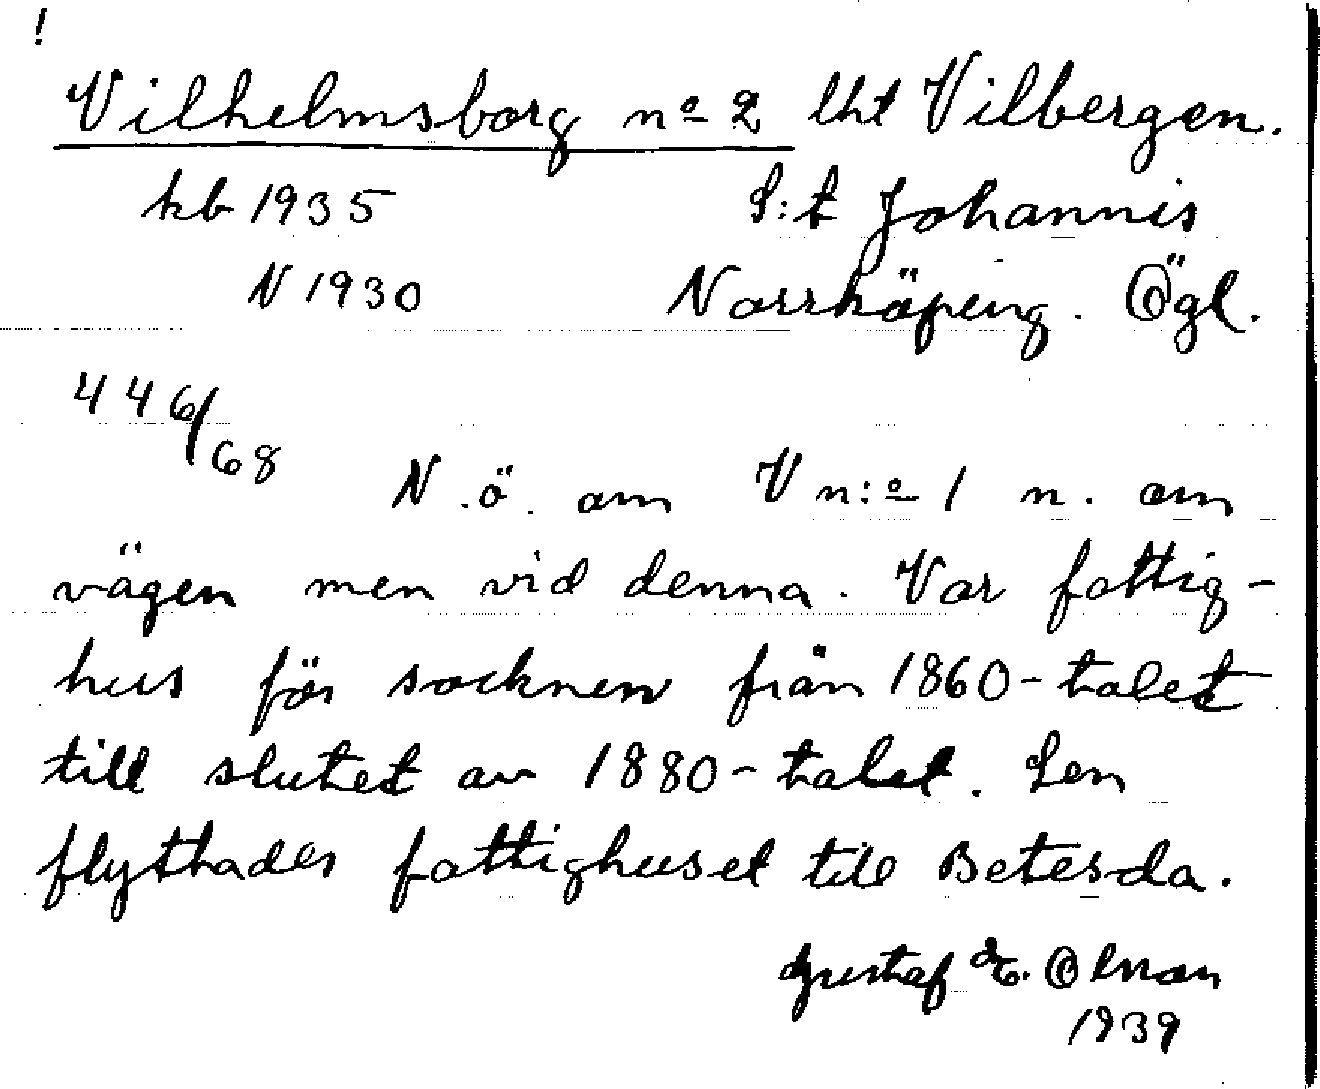 !
Vilhelmsborg nº 2 lht Vilbergen.
kb 1935 S:t Johannis
N 1930 Norrköping. Ögl.
446/68
N.ö. om V n:º 1 n. om
vägen men vid denna. Var fattig-
hus för socknen från 1860-talet
till slutet av 1880-talet. Sen
flyttades fattighuset till Betesda.
Gustaf E. Olman
1939